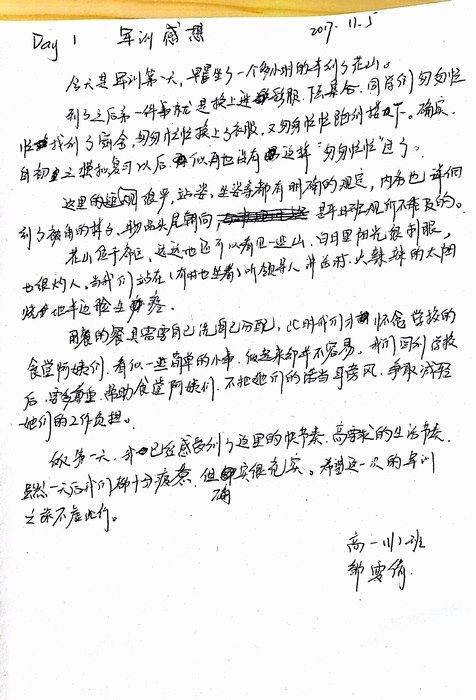 Day 1 军训感想 2017.11.5
今天是军训第一天，早晨坐了一个多小时的车到了花山。
到了之后第一件事就是换上迷彩服，下去集合。同学们匆匆忙
忙找到了宿舍，匆匆忙忙换上了衣服，又匆匆忙忙跑到楼下。确实，
自初三模拟复习以后似再也没有这样“匆匆忙忙”过了。
这里的规很严，站姿、坐姿等都有明确的规定，内务也详细
到了被角的样子、物品头尾朝向，是平日在校所不能及的。
花山处于郊区，远远地还可以看见一些山。白日里阳光极刺眼，
也很灼人，当我们站在（有时也坐着）听领导人讲话时，火辣辣的太阳
烧地半边脸生疼。
用餐的餐具需要自己洗自己分配，此时我们才怀念学校的
食堂阿姨们。看似一些简单的小事，做起来却并不容易。我们回到学校
后，尊重、帮助食堂阿姨们，不把她们的话当耳旁风，争取减轻
她们的工作负担。
第一天，我已经感受到了这里的快节奏、高要求的生活节奏。
虽然一天后我们都十分疲惫，但确实很充实。希望这一次的军训
之旅不虚此行。
高一（11）班
邹雯倩